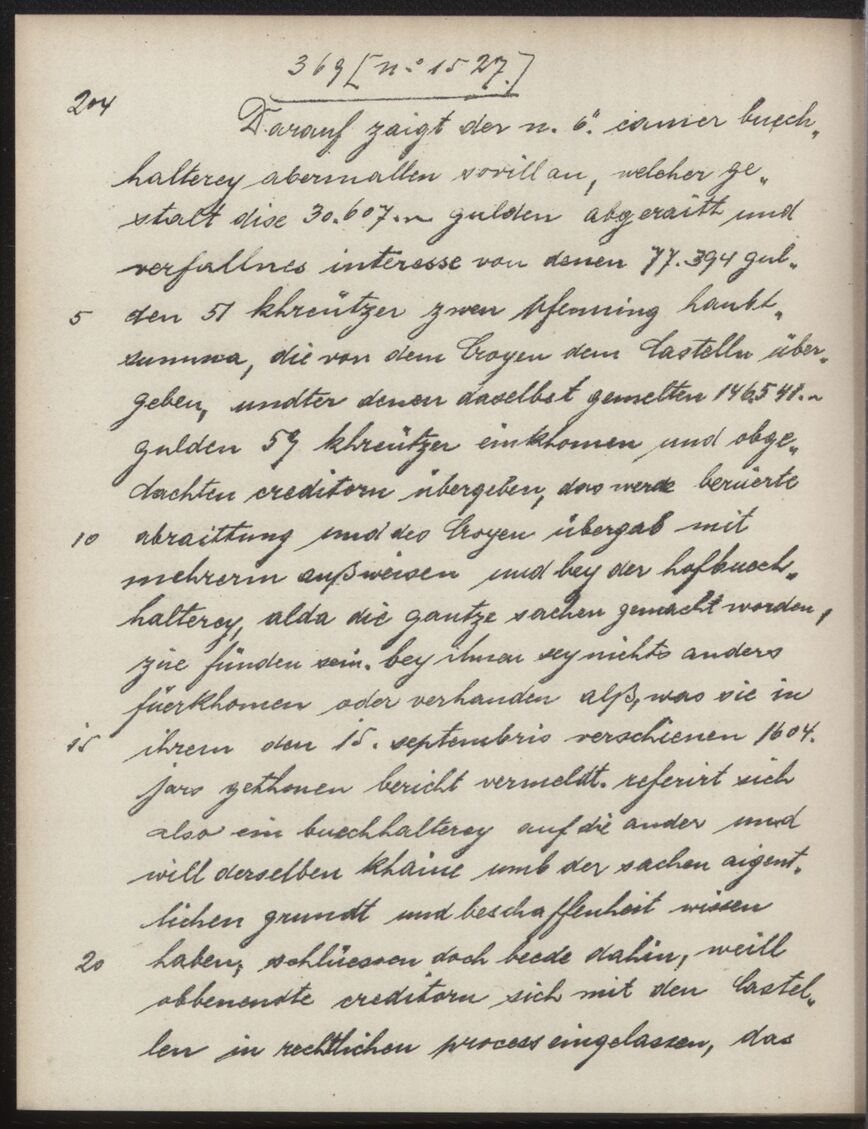 369 [n.o 1527.]
204
Darauf zaigt der n. ö. camer buech„
halterey abermallen sovill an, welcher ge„
stalt dise 30.607.n gulden abgeraitt und
verfallnes interesse von denen 77.394 gul„
5 den 51 khreützer zwen pfenning haubt„
summa, die von dem Croyen dem Castelln über„
geben, undter denen daselbst gemelten 146541.n
gulden 59 khreützer einkhomen und obge„
dachten creditorn übergeben, das werde beruerte
10 abraittung und des Croyen übergab mit
mehrerm außweisen und bey der hofbuech„
halterey, alda die gantze sachen gemacht worden,
züe fünden sein. bey ihnen sey nichts anders
füerkhomen oder verhanden alß, was sie in
15 ihrem den 15. septembris verschienen 1604.
jars gethonen bericht vermeldt. referirt sich
also ein buechhalterey auf die ander und
will derselben khaine umb der sachen aigent„
lichen grundt und beschaffenheit wissen
20 haben, schlüessen doch beede dahin, weill
obbenendte creditorn sich mit den Castel„
len in rechtlichen process eingelassen, das